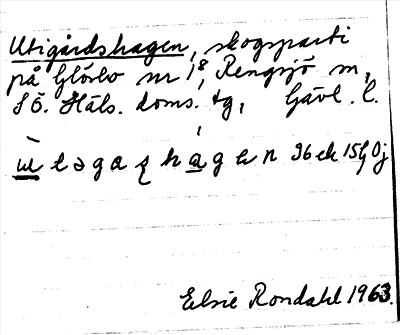 Utigårdshagen, skogsparti
på Glösbo nr 1⁸, Rengsjö sn,
SÖ. Häls. doms. tg, Gävl. l.
36 ek 15G0j
Elsie Rondahl 1963.